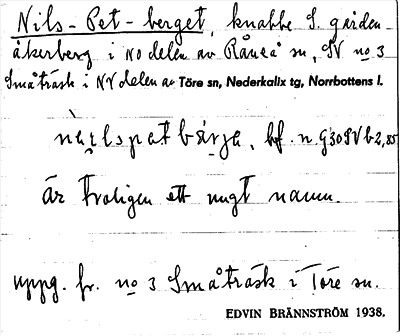 Nils-Pet-berget, knabbe S. gården
åkerberg i NO delen av Råneå sn, SV no 3
Småträsk i NV delen av Töre sn, Nederkalix tg, Norrbottens l.
bf. n. G30SVb2,85
är troligen ett nugt namn.
uppg. fr. no 3 Småträsk i Töre sn.
EDVIN BRÄNNSTRÖM 1938.